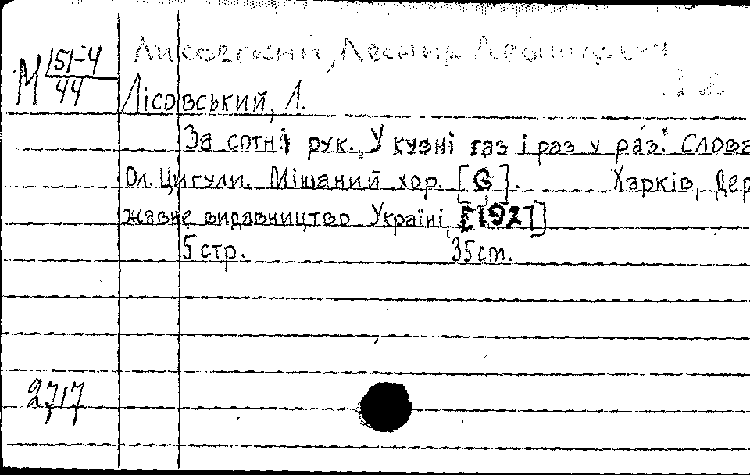 Лисовский, Леонид Леонидович
М 151-4
44
Лісовський, Л.
За сотні рук., У кузні газ і раз у раз. Слова
Ол. Цигули. Мішаний хор. [G]. Харків, Дер
жавне видавництво Україні, [1927]
5 стр. 35 cm.
2717